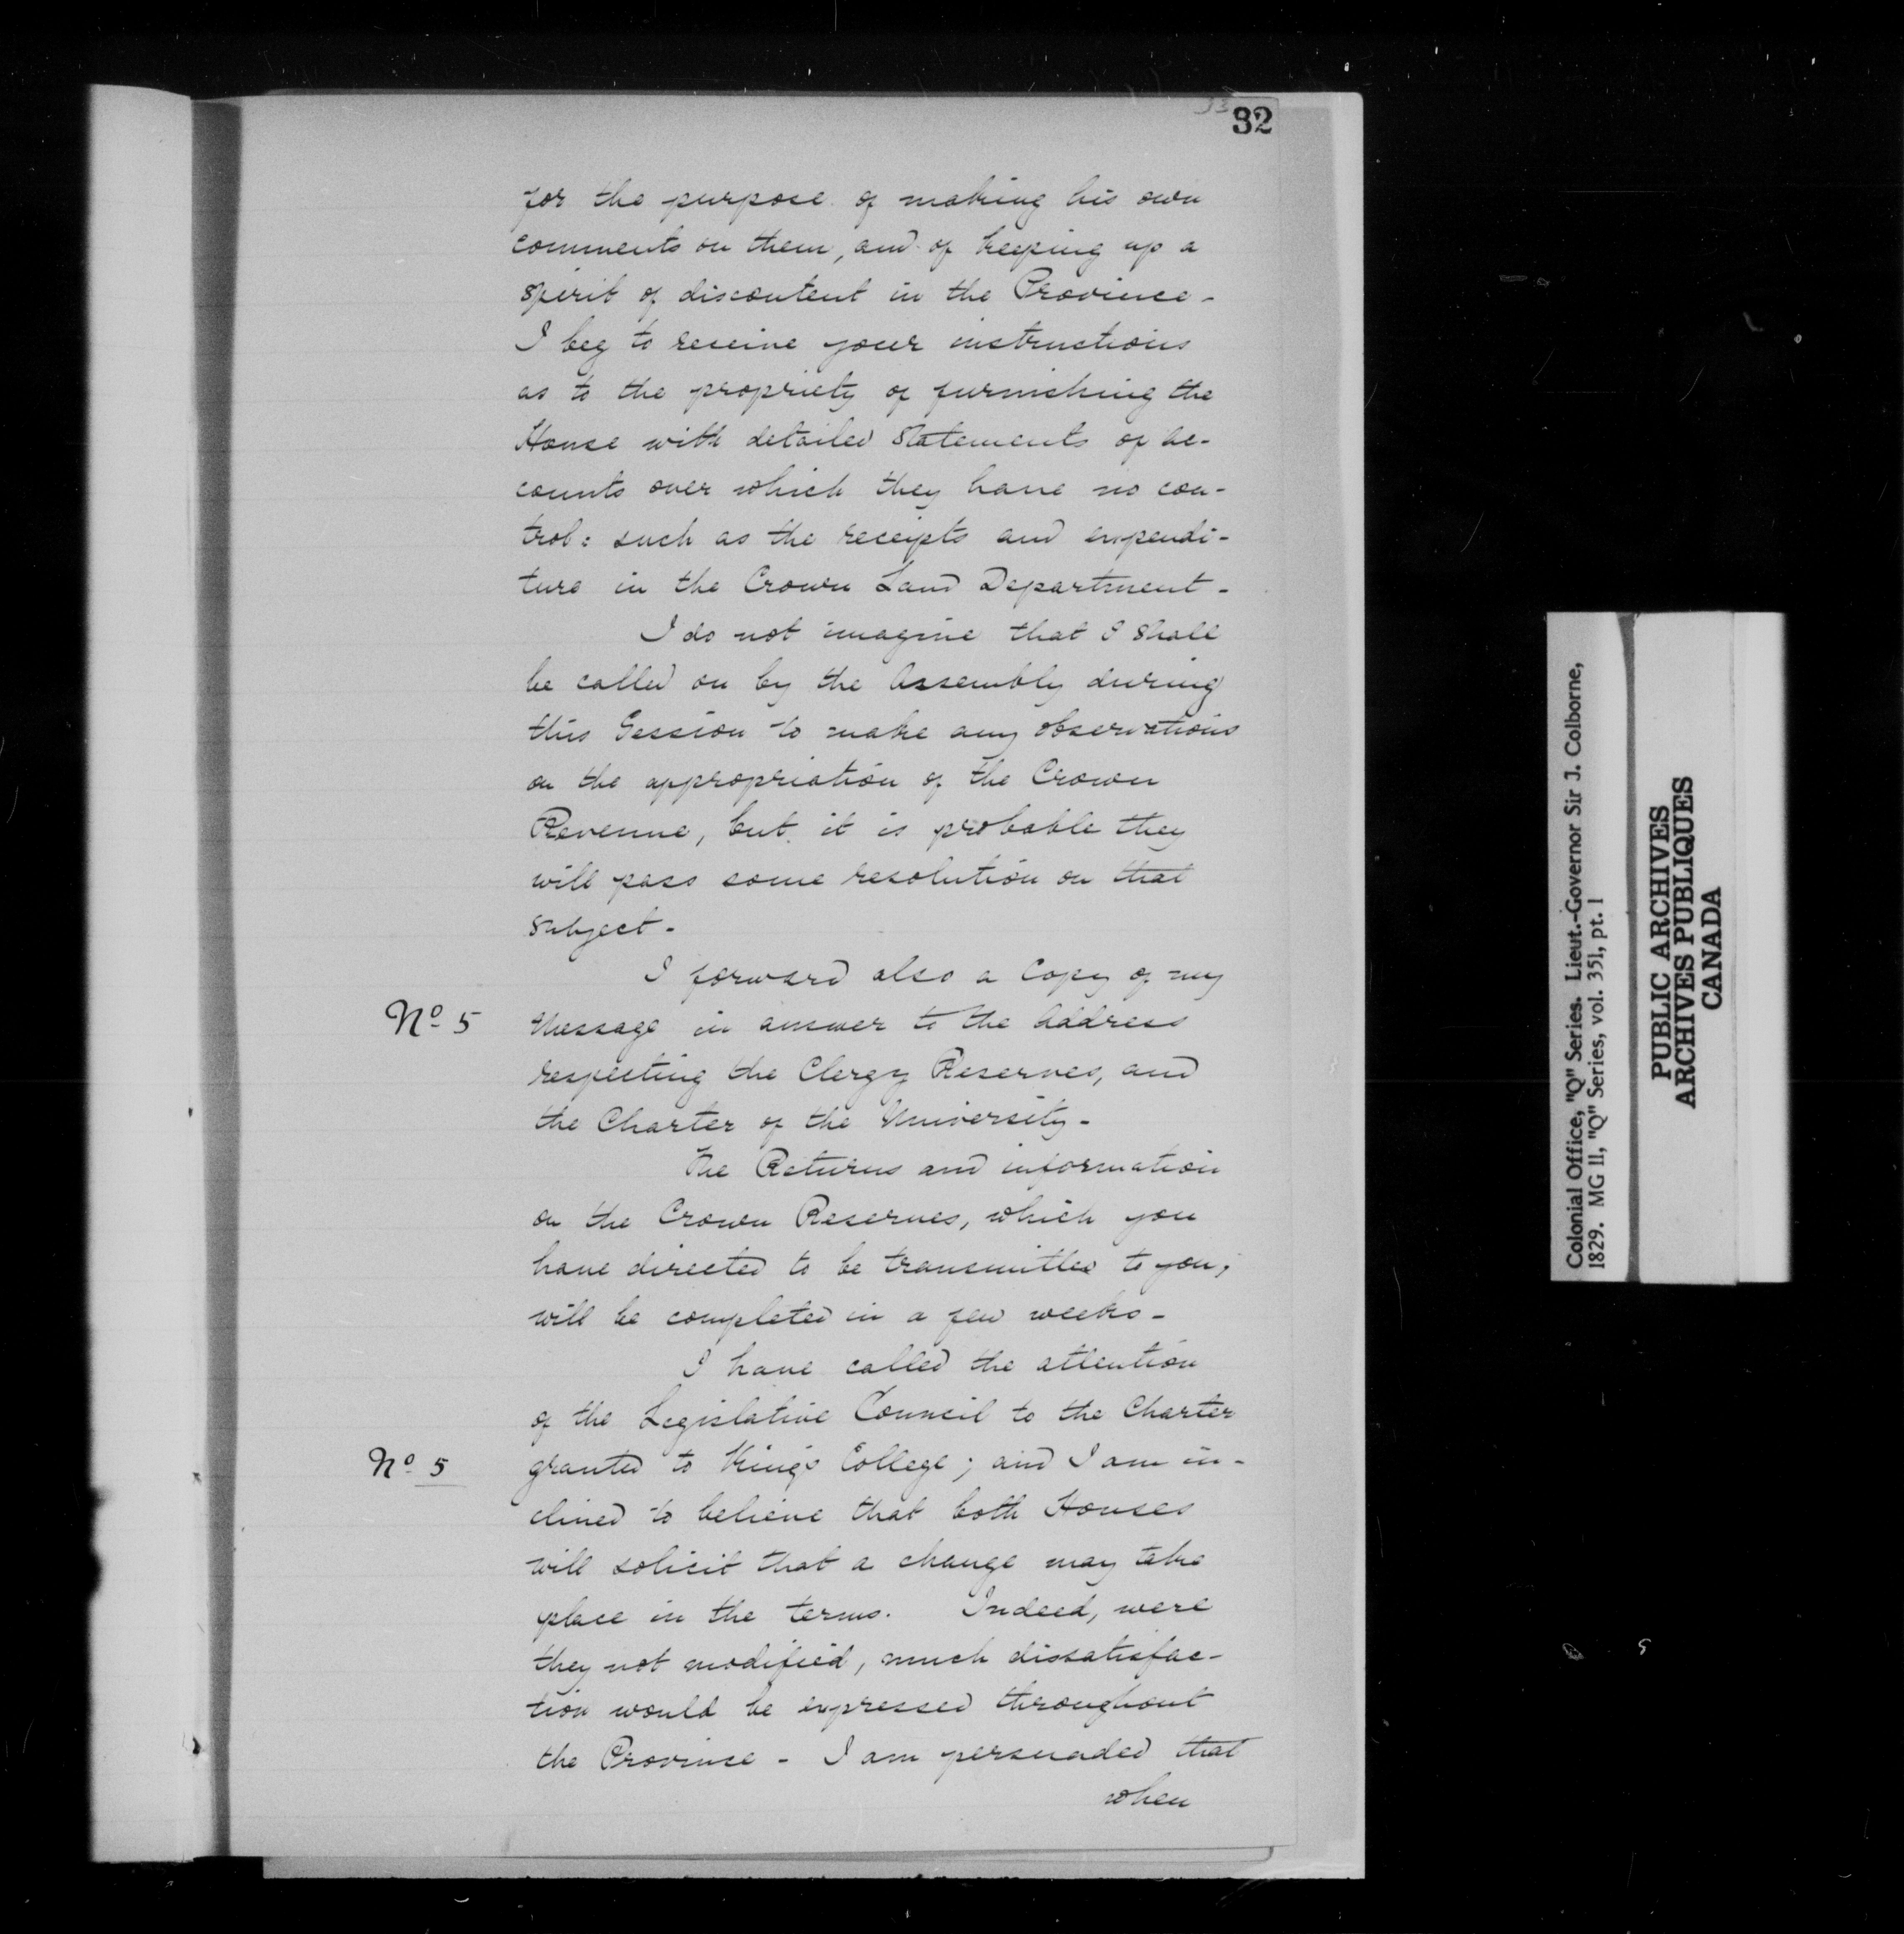 32
for the purpose of making his own
comments on them, and of keeping up a
spirit of discontent in the Province -
I beg to receive your instructions
as to the propriety of furnishing the
House with detailed Statements of ac-
counts over which they have no con-
trol: such as the receipts and expendi-
ture in the Crown Land Department -
I do not imagine that I shall
be called on by the Assembly during
this Session to make any observations
on the appropriation of the Crown
Revenue, but it is probable they
will pass some resolution on that
subject -
I forward also a Copy of my
No 5 Message in answer to the Address
respecting the Clergy Reserves, and
the Charter of the University -
The Returns and information
on the Crown Reserves, which you
have directed to be transmitted to you,
will be completed in a few weeks -
I have called the attention
of the Legislative Council to the Charter
No 5 granted to King's College; and I am in-
clined to believe that both Houses
will solicit that a change may take
place in the terms. Indeed, were
they not modified, much dissatisfac-
tion would be expressed throughout
the Province - I am persuaded that
when
Colonial Office, "Q" Series. Lieut.-Governor Sir J. Colborne,
1829. MG 11, "Q" Series, vol. 351, pt. 1
PUBLIC ARCHIVES
ARCHIVES PUBLIQUES
CANADA